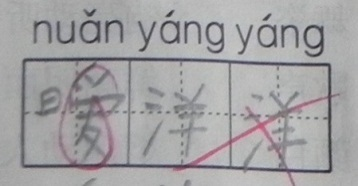 nuǎn yáng yáng
暖洋洋